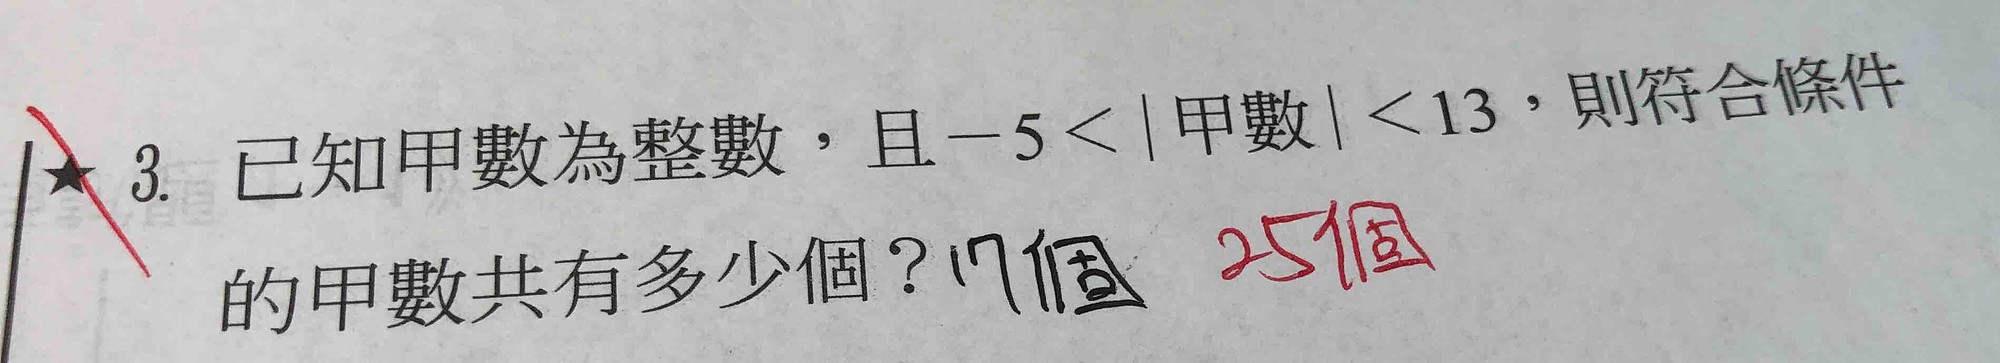 ★ 3. 已知甲數為整數，且－5＜|甲數|＜13，則符合條件
的甲數共有多少個？17個 25個